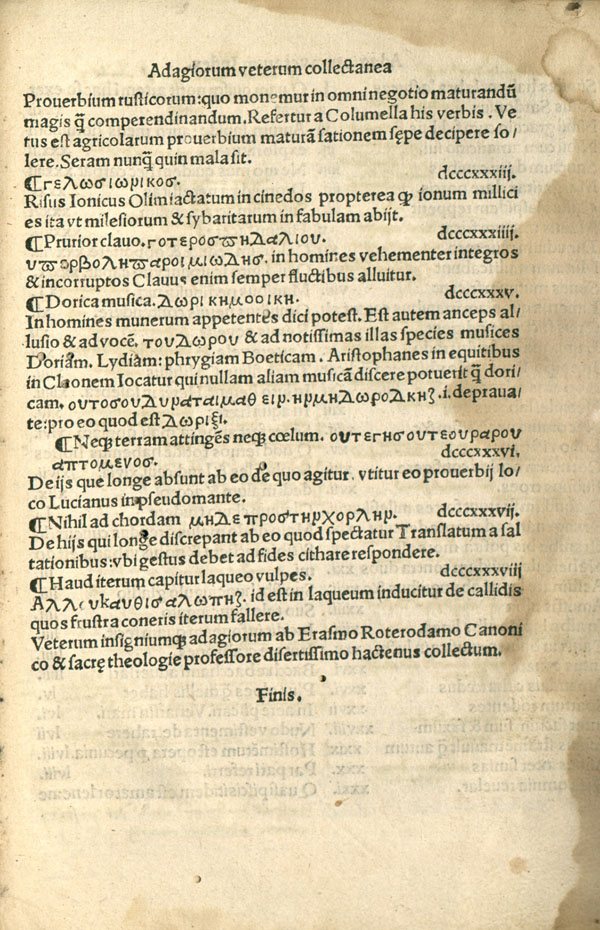 Adagiorum veterum collectanea
Prouerbium rusticorum: quo monemur in omni negotio maturandū
magis q̃ comperendinandum. Refertur a Columella his verbis. Ve
tus est agricolarum prouerbium maturā sationem sępe decipere so/
lere. Seram nunq̃ quin mala sit.
¶γελωσιωρικοσ. dcccxxxiij.
Risus Ionicus Olim iactatum in cinedos propterea ꝙ ionum millici
es ita vt milesiorum & sybaritarum in fabulam abijt.
¶Prurior clauo. γοτεροσπηδαλιου. dcccxxxiiij.
υπορβοληπαροιμιωδησ. in homines vehementer integros
& incorruptos Clauus enim semper fluctibus alluitur.
¶Dorica musica. δωρικημοοικη. dcccxxxv.
In homines munerum appetentes dici potest. Est autem anceps al/
lusio & ad vocē, τουδωρου & ad notissimas illas species musices
Doriam. Lydiam: phrygiam Boeticam. Aristophanes in equitibus
in Claonem Iocatur qui nullam aliam musicā discere potuerit q̃ dori
cam. ουτοσουδυραταιμαθειρ. ηρμηδωροδκηϛ. i. deprauа/
te: pro eo quod est δωριξι.
¶Neqꝫ terram attingēs neqꝫ cœlum. ουτεγησουτεουραρου
απτομενοσ. dcccxxxvi.
De ijs que longe absunt ab eo de quo agitur. vtitur eo prouerbij lo/
co Lucianus in pseudomante.
¶Nihil ad chordam μηδεπροστηρχορληρ. dcccxxxvij.
De hijs qui longe discrepant ab eo quod spectatur Translatum a sal
tationibus: vbi gestus debet ad fides cithare respondere.
¶Haud iterum capitur laqueo vulpes. dcccxxxviij
Αλλουκαυθισαλωπηϛ. id est in laqueum inducitur de callidis
quos frustra coneris iterum fallere.
Veterum insigniumqꝫ adagiorum ab Erasmo Roterodamo Canoni
co & sacrę theologie professore disertissimo hactenus collectum.
Finis.